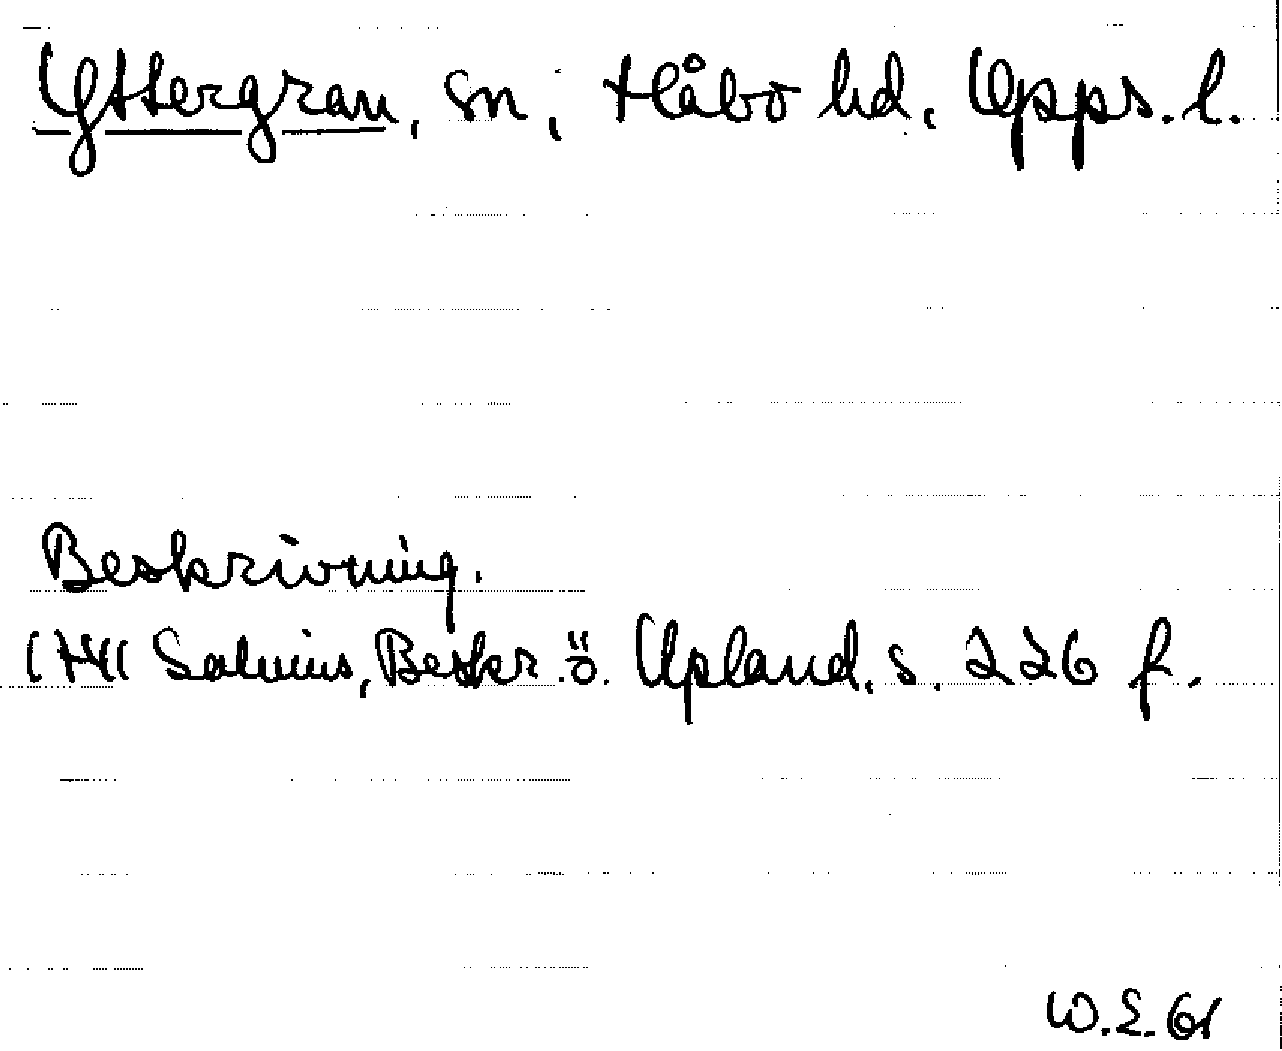 Yttergran, sn, Håbo hd. Upps. l.
Beskrivning.
1741 Salvius, Beskr. ö. Upland. s. 226 f.
W.E. 61